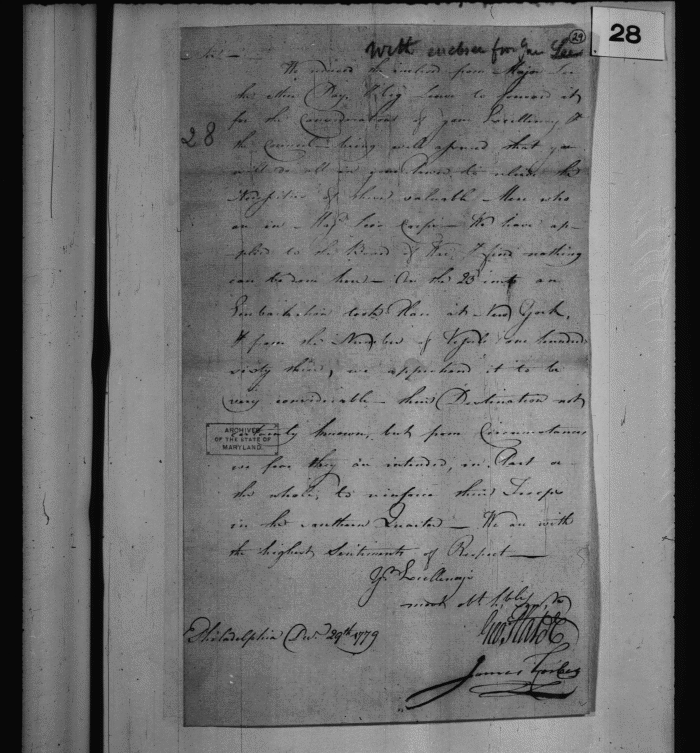 28
29
With enclose from Gen Lee
We received the inclosed from Major Lee
this Morn Day, & beg leave to forward it
for the Consideration of your Excellency &
the Council being well assured that you
will do all in your Power to relieve the
28
Necessities of those valuable Men who
are in Majr Lees Corps — We have ap-
plied to the Board of War & find nothing
can be done here — On the 23d inst. an
Embarkation took Place at New York,
& from the Number of Vessels one hundred
sixty three, we apprehend it to be
very considerable — their Destination not
certainly known, but from Circumstances
we fear they are intended, in Part or
the whole, to reinforce their Troops
in the southern Quarter — We are with
the highest Sentiments of Respect —
Yr. Excellency's
most Obt
Geo. Plater
James Forbes
Philadelphia Decr. 29th 1779
ARCHIVES
OF THE STATE OF
MARYLAND